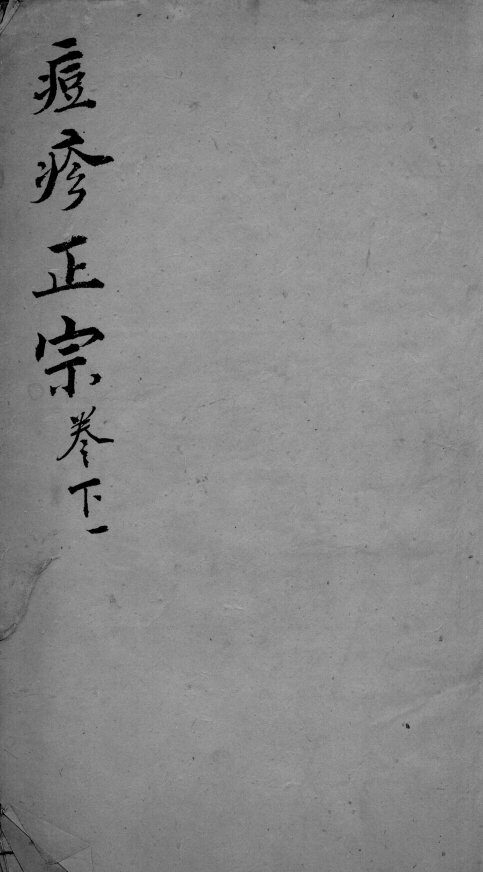 痘疹正宗卷下一